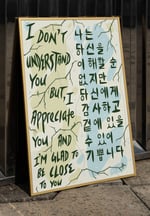 I DON'T
UNDERSTAND
YOU
BUT, I
APPRECIATE
YOU AND
I'M GLAD TO
BE CLOSE
TO YOU
나는
당신을
이해할 순
없지만
당신에게
감사하고
곁에 있을
수 있어
기쁩니다